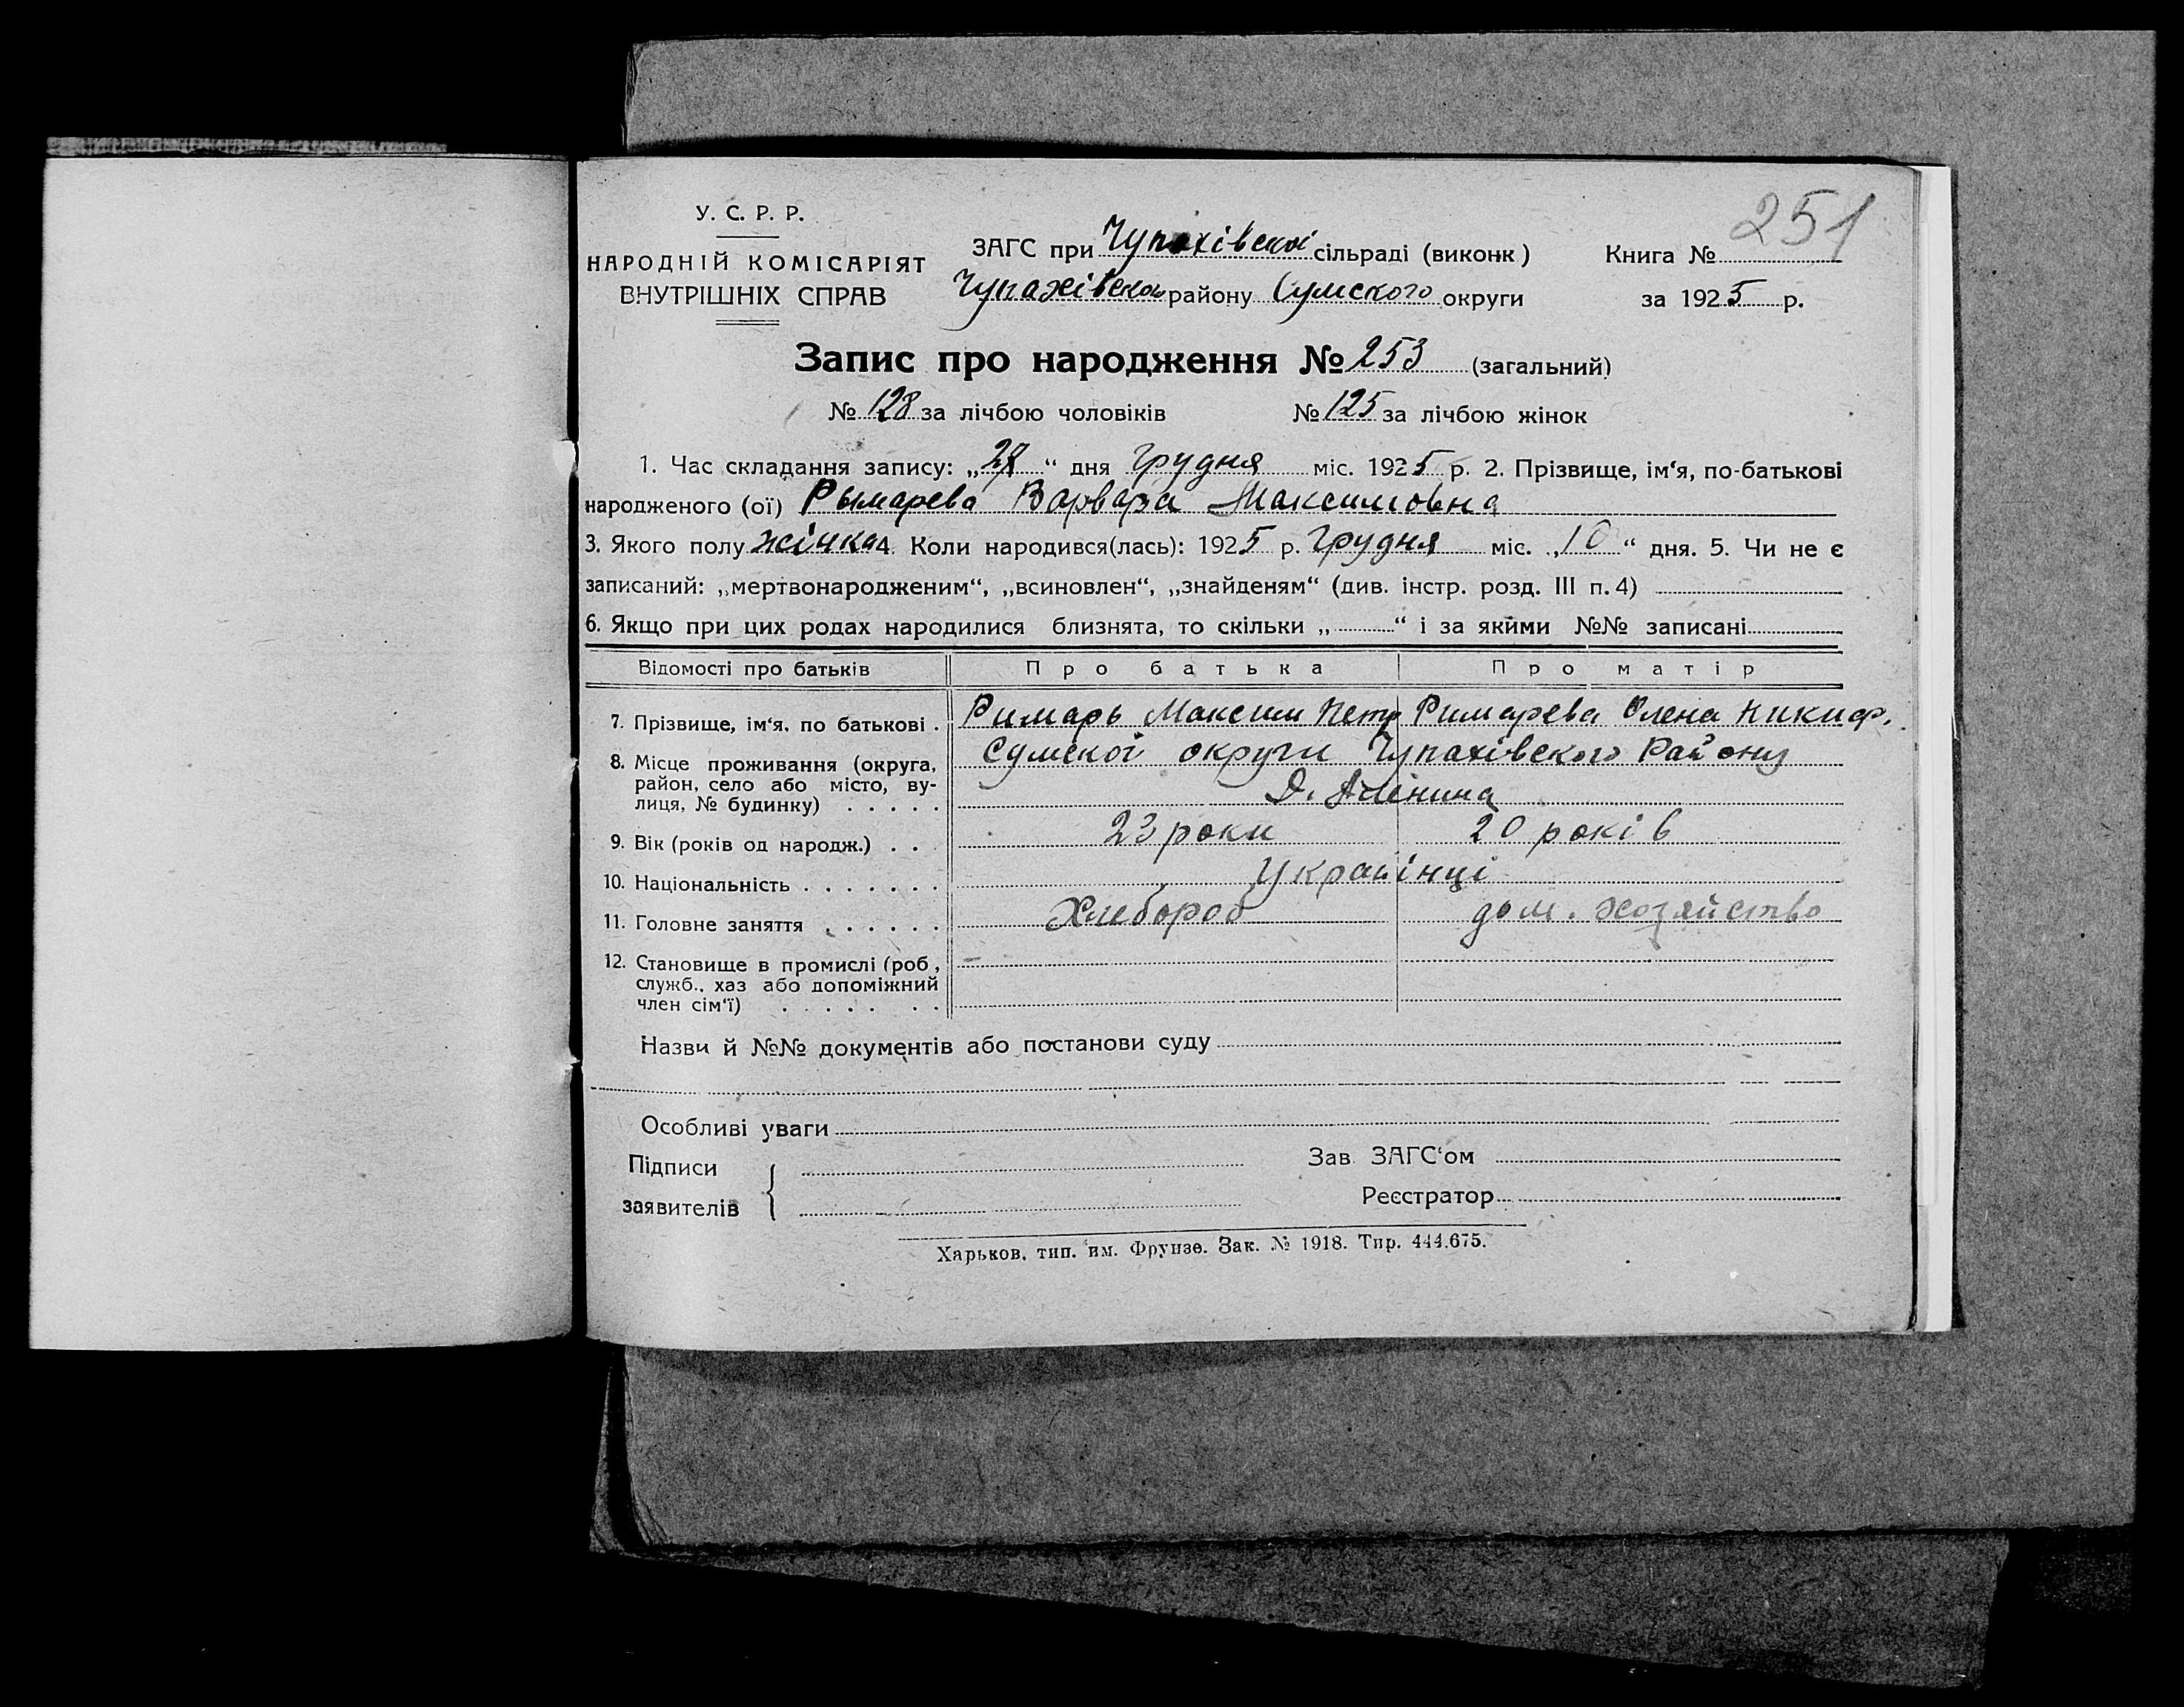 251
У. С. Р. Р.
НАРОДНІЙ КОМІСАРІЯТ
ВНУТРІШНІХ СПРАВ
ЗАГС при Чупахівской сільраді (виконк) Книга №
Чупахівском району Сумского округи за 1925 р.
Запис про народження № 253 (загальний)
№ 128 за лічбою чоловіків № 125 за лічбою жінок
1. Час складання запису: „ “ дня Грудня міс. 1925 р. 2. Прізвище, ім‘я, по-батькові
народженого (ої) Рымарева Варвара Максимовна
3. Якого полу жінка 4. Коли народився(лась): 1925 р. Грудня міс. „10“ дня. 5. Чи не є
записаний: „мертвонародженим“, „всиновлен“, „знайденям“ (див. інстр. розд. III п. 4)
6. Якщо при цих родах народилися близнята, то скільки „ “ і за якими №№ записані
Відомості про батьків Про батька Про матір
7. Прізвище, ім‘я, по батькові . Римарь Максим Петр Римарева Олена Никиф.
8. Місце проживання (округа, район, село або місто, вулиця, № будинку) . . . . . Сумской округи Чупахівского Району
9. Вік (років од народж.) . . . 23 роки 20 років
10. Національність . . . . . . . Украінці
11. Головне заняття . . . . . . Хлебороб дом. хозяйство
12. Становище в промислі (роб,
служб., хаз або допоміжний
член сім‘ї) . . . . . . .
Назви й №№ документів або постанови суду
Особливі уваги
Підписи
заявителів
Зав. ЗАГС‘ом
Реєстратор
Харьков, тип. им. Фрунзе. Зак. № 1918. Тир. 444.675.